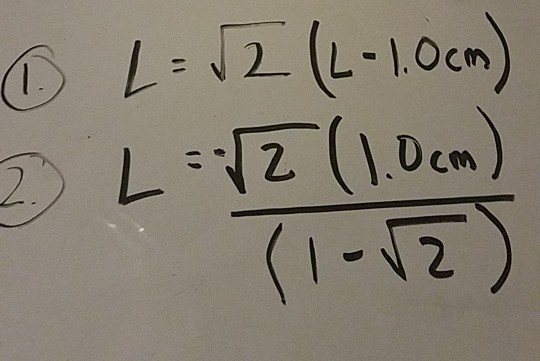 1. L = √2 (L - 1.0cm)
2. L = -√2 (1.0cm)
(1 - √2)